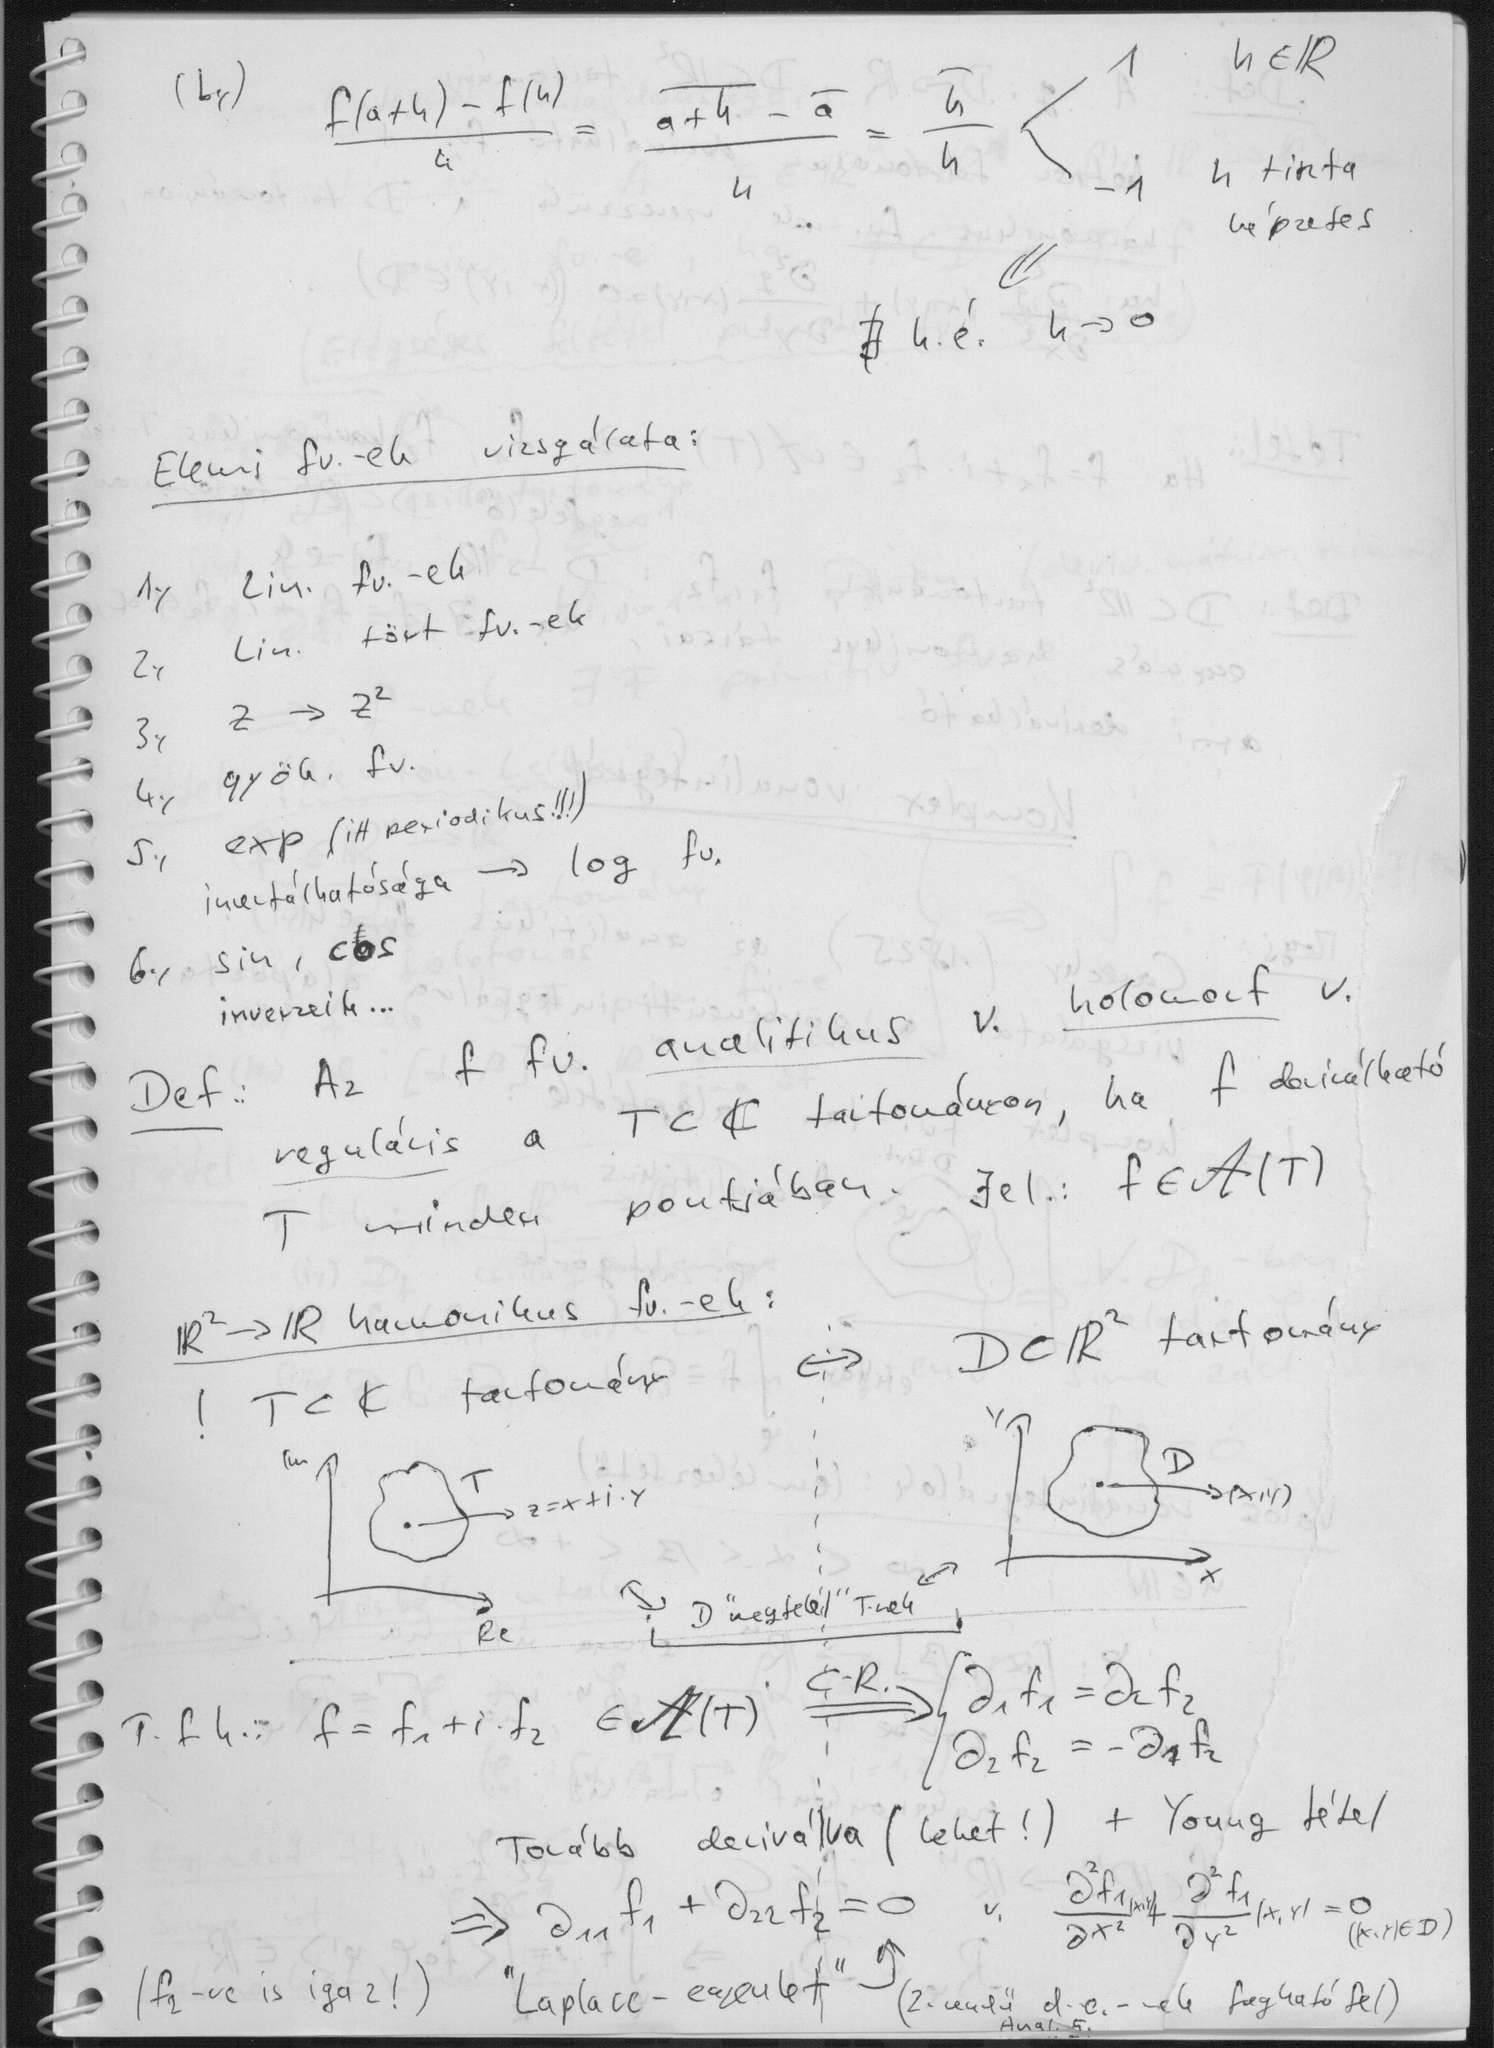 (b,) (f(a+h) - f(h))/h = (\overline{a+h} - \overline{a})/h = \overline{h}/h < 1 h∈ℝ
-1 h tiszta
képzetes
⇙
∄ h.é. h→0
Elemi fv.-ek vizsgálata:
1., Lin. fv.-ek
2., Lin. tört fv.-ek
3., z → z²
4., gyök. fv.
5., exp (itt periodikus!!!)
invertálhatósága → log fv.
6., sin, cos
inverzeik...
Def.: Az f fv. analitikus v. holomorf v.
reguláris a T⊂ℂ tartományon, ha f deriválható
T minden pontjában. Jel.: f∈𝒜(T)
ℝ²→ℝ harmonikus fv.-ek:
! T⊂ℂ tartomány ↔ D⊂ℝ² tartomány
Im T z=x+i·y Re
Y D (x,y) X
D "megfelel" T-nek
T.f.h.: f = f₁+i·f₂ ∈𝒜(T) C-R. ⟹ { ∂₁f₁ = ∂₂f₂
∂₂f₂ = -∂₁f₂
Tovább deriválva (lehet!) + Young tétel
⇒ ∂₁₁f₁ + ∂₂₂f₂ = 0 v. ∂²f₁/∂x² (x,y) + ∂²f₁/∂y² (x,y) = 0 ((x,y)∈D)
(f₂-re is igaz!) "Laplace-egyenlet" (2. rendű d.e.-nek fogható fel)
Anal. 5.